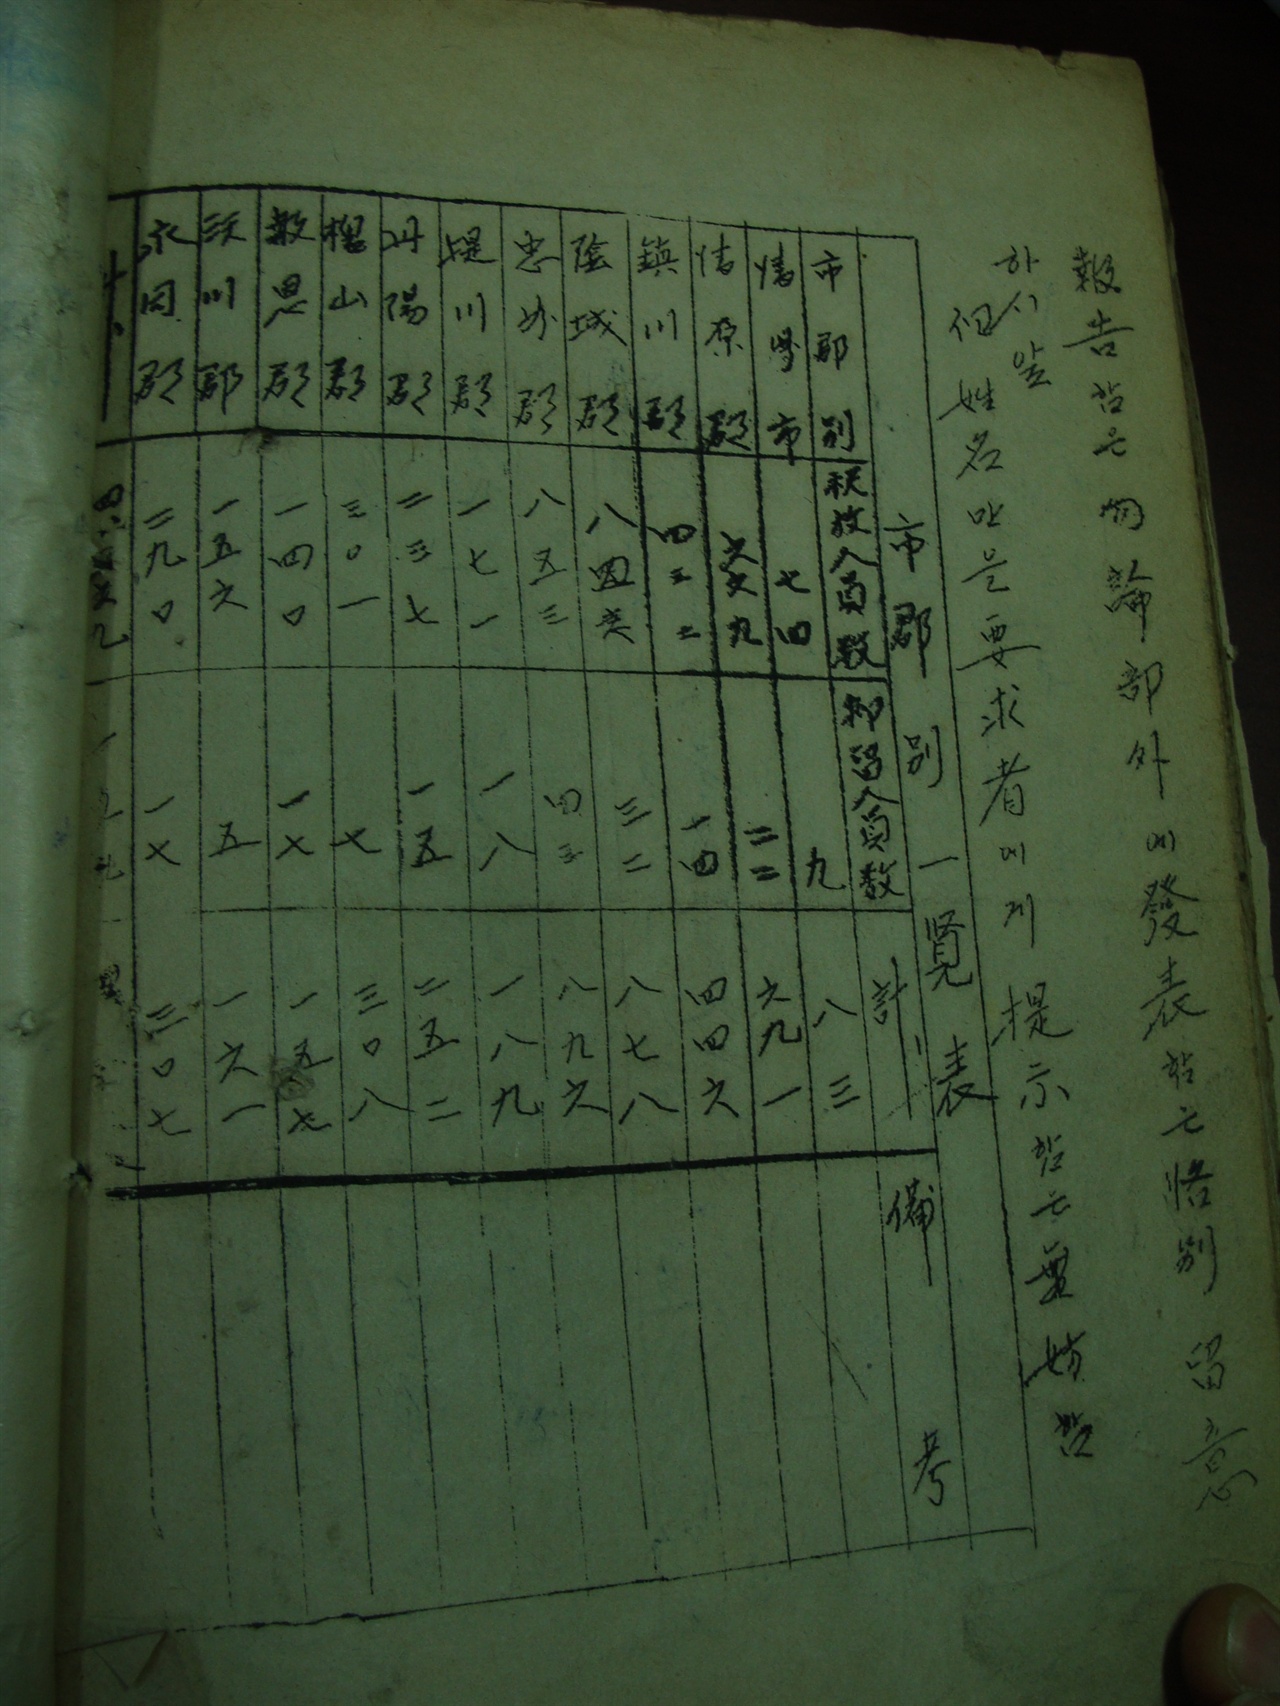 報告함은 勿論 部外에 發表함은 恪別 留意
하시앞
但 姓名만은 要求者에게 提示함은 無妨함
市郡別一覧表
市郡別 釈放人員数 抑留人員数 計 備考
清州市 七四 九 八三
清原郡 六六九 二二 六九一
鎮川郡 四三二 一四 四四六
陰城郡 八四六 三二 八七八
忠州郡 八五三 四三 八九六
堤川郡 一七一 一八 一八九
丹陽郡 二三七 一五 二五二
槐山郡 三〇一 七 三〇八
報恩郡 一四〇 一七 一五七
沃川郡 一五六 五 一六一
永同郡 二九〇 一七 三〇七
計